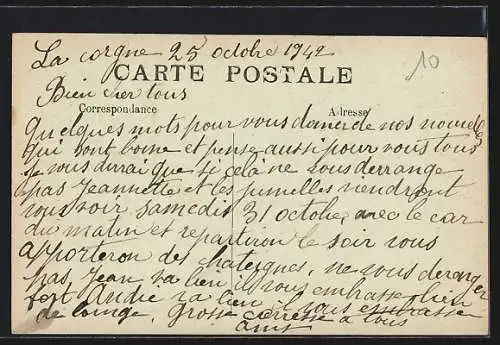 La corgne 25 octobre 1942
10
CARTE POSTALE
Bien cher tous
Correspondance
Adresse
Quelques mots pour vous donner de nos nouvelles
qui sont bonne et pense aussi pour vous tous
je vous dirai que si celà ne vous derrange
pas Jeannette et les jumelles viendront
vous voir samedis 31 octobre avec le car
du matin et repartiron le soir vous
apporteron des chateignes, ne vous deranger
pas, Jean va bien
fort Andre va bien il vous embrasse bien
de loingt, Grosse caresse a tous
amis